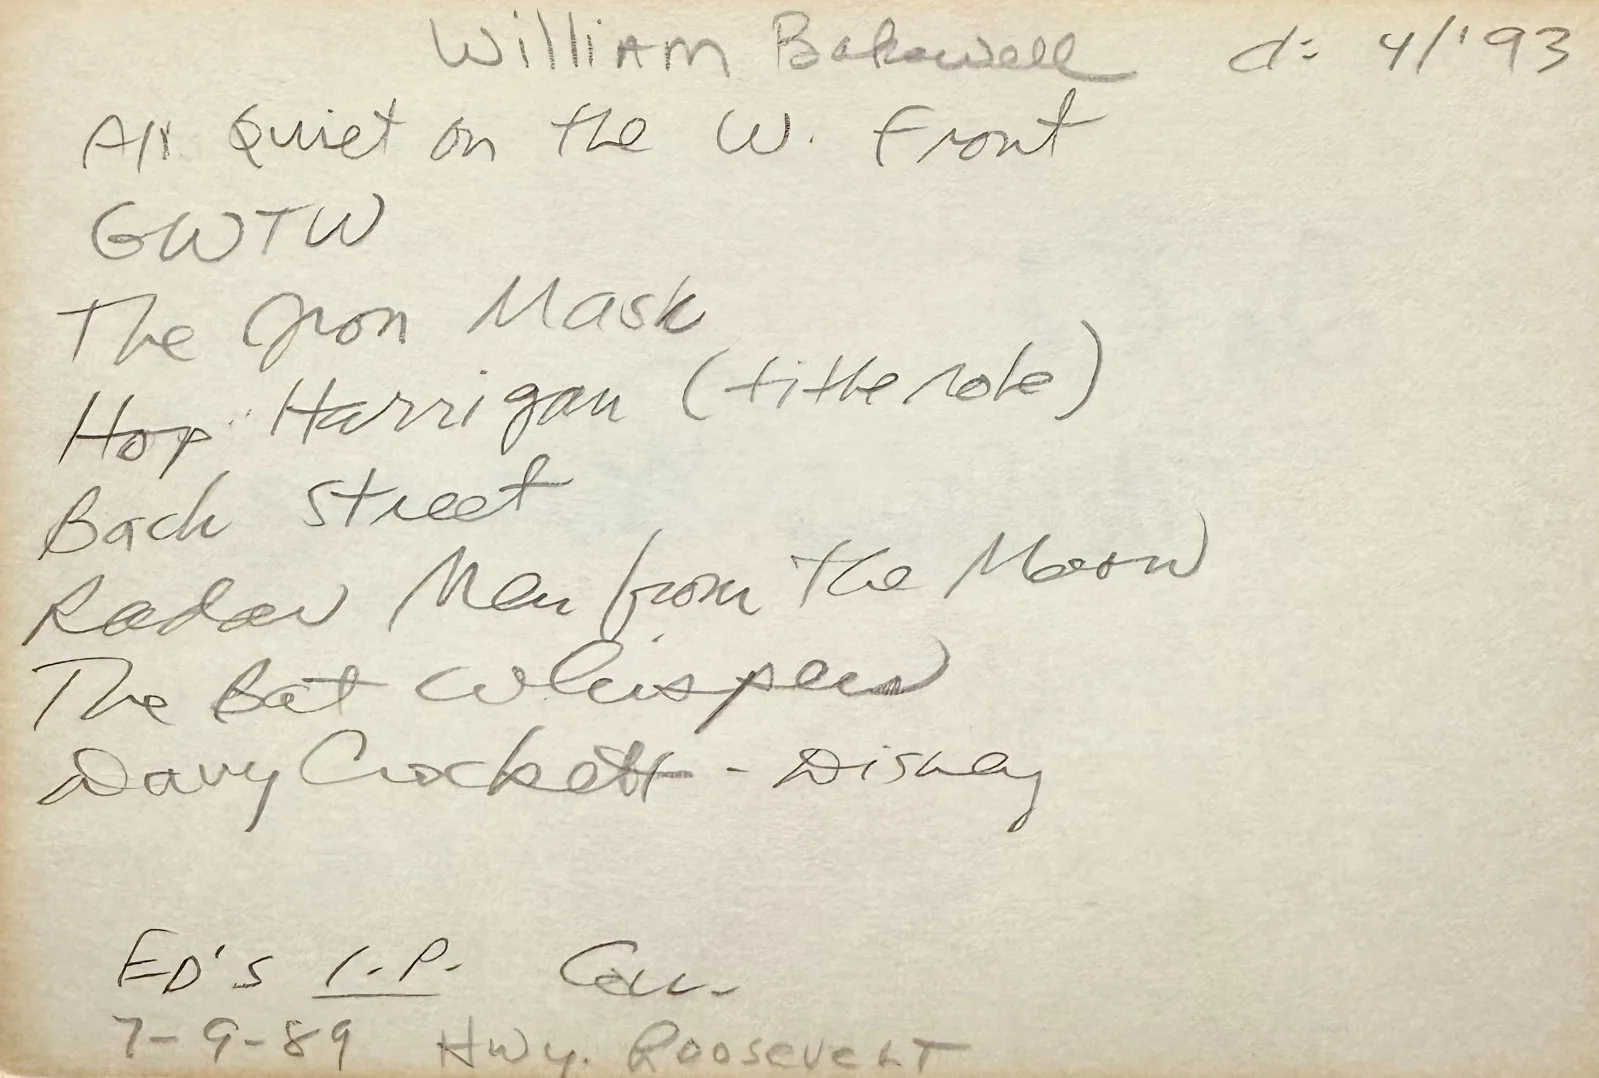 William Bakewell d: 4/'93
All Quiet on the W. Front
GWTW
The Iron Mask
Hop Harrigan (title role)
Back Street
Radar Men from the Moon
The Bat Whispers
Davy Crockett - Disney
ED's I.P. Con.
7-9-89 Hwy. Roosevelt